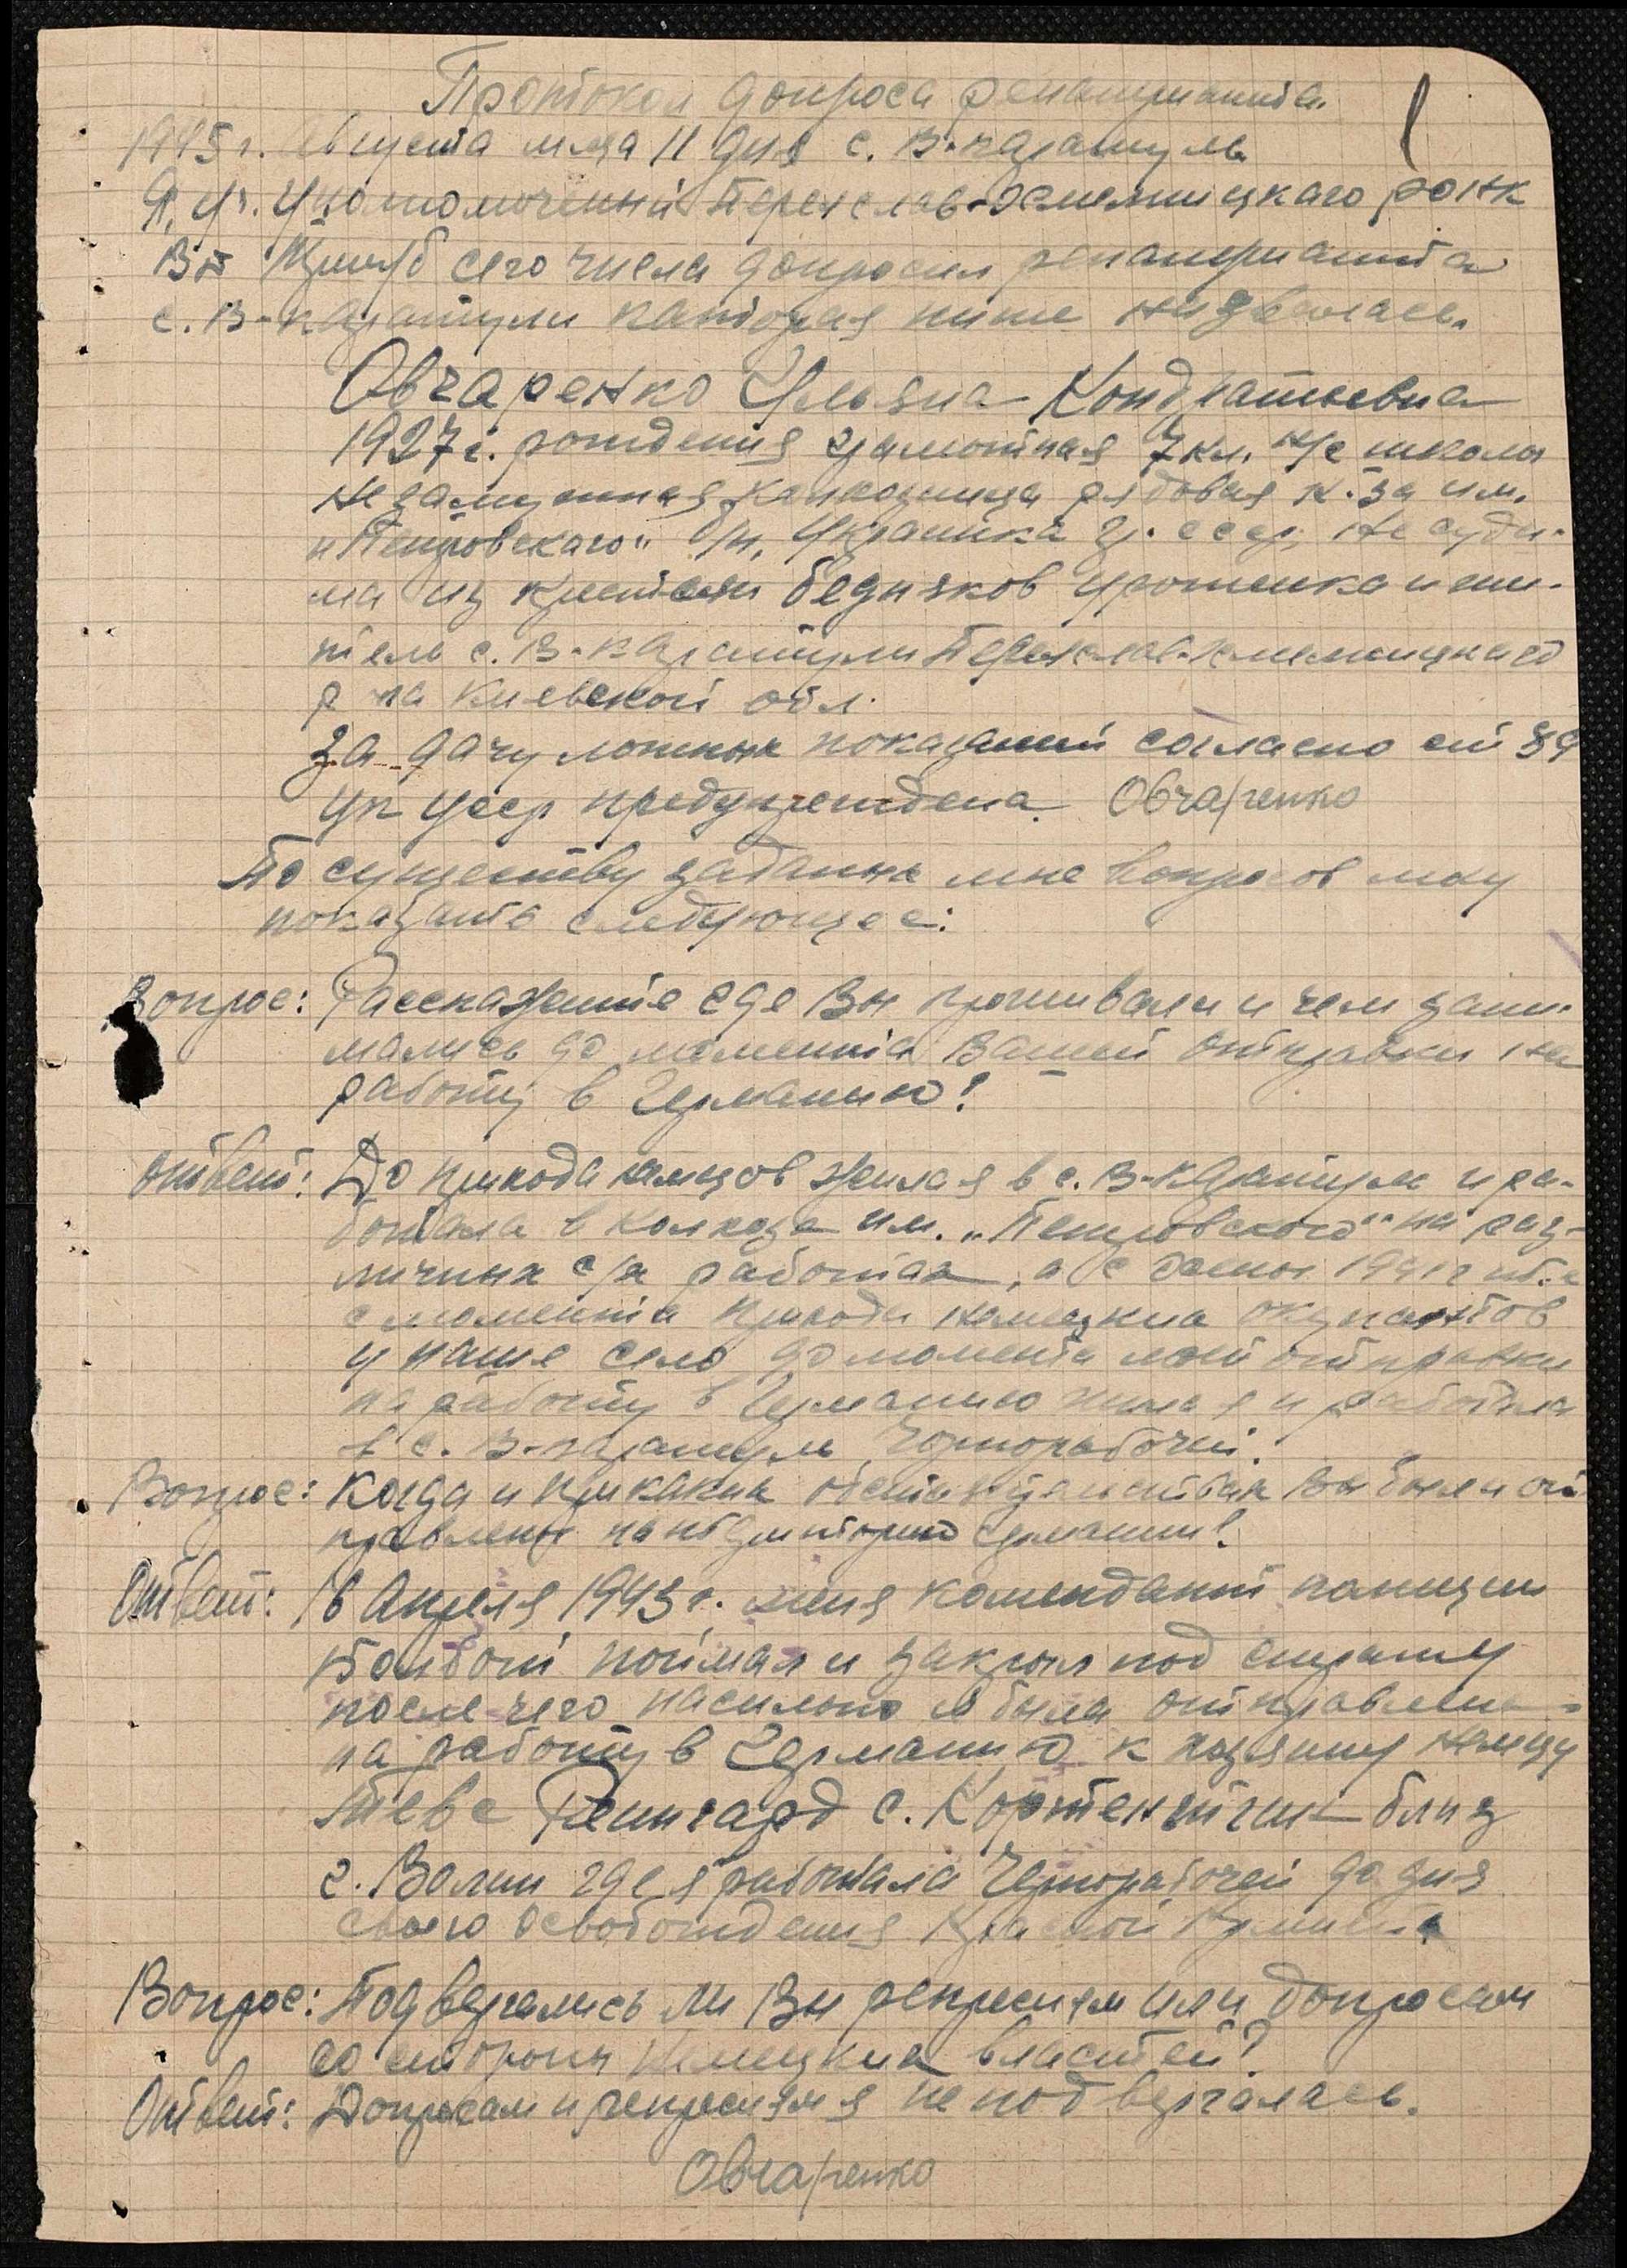 Протокол допроса репатрианта.
1945 г. Августа м-ца 11 дня с. В-Каратуль
Я, Уч. Уполномоченный Переяслав-Хмельницкаго РОНК
ВД сего числа допросил репатрианта
с. В-Каратули каторая ниже назвалась.
Овчаренко Ульяна Кондратьевна
1927 г. рождения грамотная 7 кл. н/с школы
незамужняя колхозница рядовая к-за им.
"Петровскаго" б/п, Украинка гр. ссср, не суди-
ма из крестьян бедняков уроженка и жи-
тель с. В-Каратули Переяслав-Хмельницкаго
р-на Киевской обл.
За дачу ложных показаний согласно ст 89
УК Усср предупреждена. Овчаренко
По существу заданых мне вопросов могу
показать следующее:
Вопрос: Расскажите где Вы проживали и чем зани-
мались до момента Вашей отправки на
работу в Германию?
Ответ: До прихода немцов жила я в с. В-Каратули и ра-
ботала в колхозе им. "Петровского" на раз-
личных с/х работах, а с 1941 г
с момента прихода немецких окупантов
у наше село до момента моей отправки
на работу в Германию жила я и работала
в с. В-Каратуль Чорнорабочей.
Вопрос: Когда и при каких обстоятельствах Вы были от
правлены на територию Германии?
Ответ: 16 Апреля 1943 г. меня комендант полиции
поймал и закрыл под стражу
после чего насильно я была отправлена
на работу в Германию к хозяину немцу
Теве Реингард с. Кортентгин близ
г. Велин где я работала Чернорабочей до дня
своего освобождения Красной Армией
Вопрос: Подвергались ли Вы репресиям или допросам
со стороны немецких властей?
Ответ: Допросам и репресиям я не подвергалась.
Овчаренко